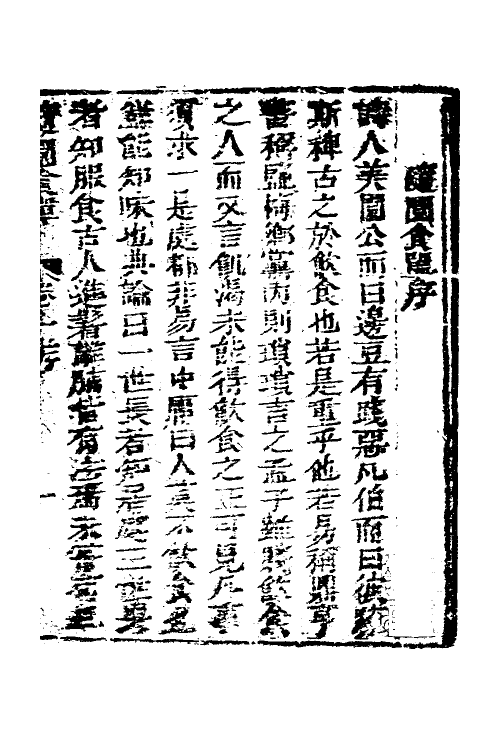 隨園食單序
詩人美周公而曰邊豆有踐惡凡伯而曰彼疏
斯稗古之於飲食也若是重乎他若易稱鼎亨
書稱鹽梅鄉黨內則瑣瑣言之孟子雖賤飲食
之人而又言飢渴未能得飲食之正可見凡事
須求一是處都非易言中庸曰人莫不飲食也
鮮能知味也典論曰一世長者知居處三世長
者知服食古人進鬐離肺皆有法焉未嘗苟且
隨園食單 卷 序 一